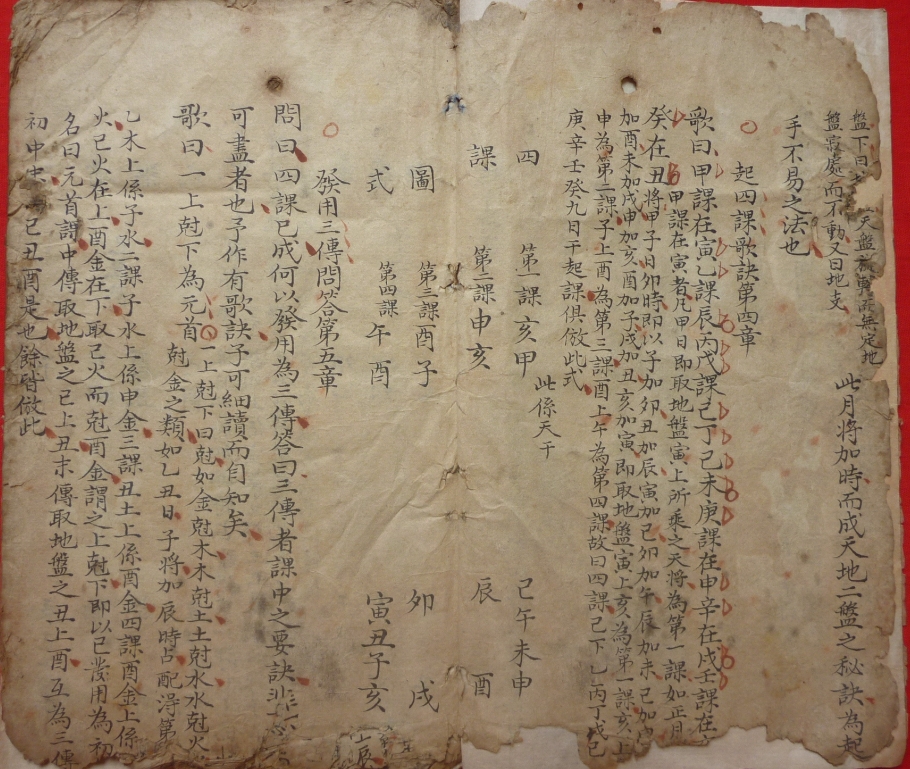 盤下曰
天盤
無定地
盤定處而不動又曰地支
此月將加時而成天地二盤之秘訣為起
手不易之法也
起四課歌訣第四章
歌曰甲課在寅乙課辰丙戊課己丁己未庚課在申辛在戌壬課在
癸在丑
甲課在寅者凡甲日即取地盤寅上所乘之天將為第一課如正月
將甲子日卯時即以子加卯丑加辰寅加己卯加午辰加未己加申
加酉未加戌申加亥酉加子戌加丑亥加寅即取地盤寅上亥為第一課亥上
申為第二課子上酉為第三課酉上午為第四課故曰四課己下乙丙丁戊己
庚辛壬癸九日干起課俱倣此式
此係天干
四 第一課亥甲 己午未申
課 第二課申亥 辰 酉
圖 第三課酉子 卯 戌
式 第四課午酉 寅丑子亥
發用三傳問答第五章
問曰四課已成何以發用為三傳答曰三傳者課中之要訣非
可盡者也予作有歌訣子可細讀而自知矣
歌曰一上尅下為元首
一上尅下曰尅如金尅木木尅土土尅水水尅火
尅金之類如乙丑日子將加辰時占配淂第
乙木上係子水二課子水上係申金三課丑土上係酉金四課酉金上係
火己火在上酉金在下取己火而尅酉金謂之上尅下即以己發用為初
名曰元首課中傳取地盤之己上丑末傳取地盤之丑上酉互為三傳
初中末
己丑酉是也餘皆倣此